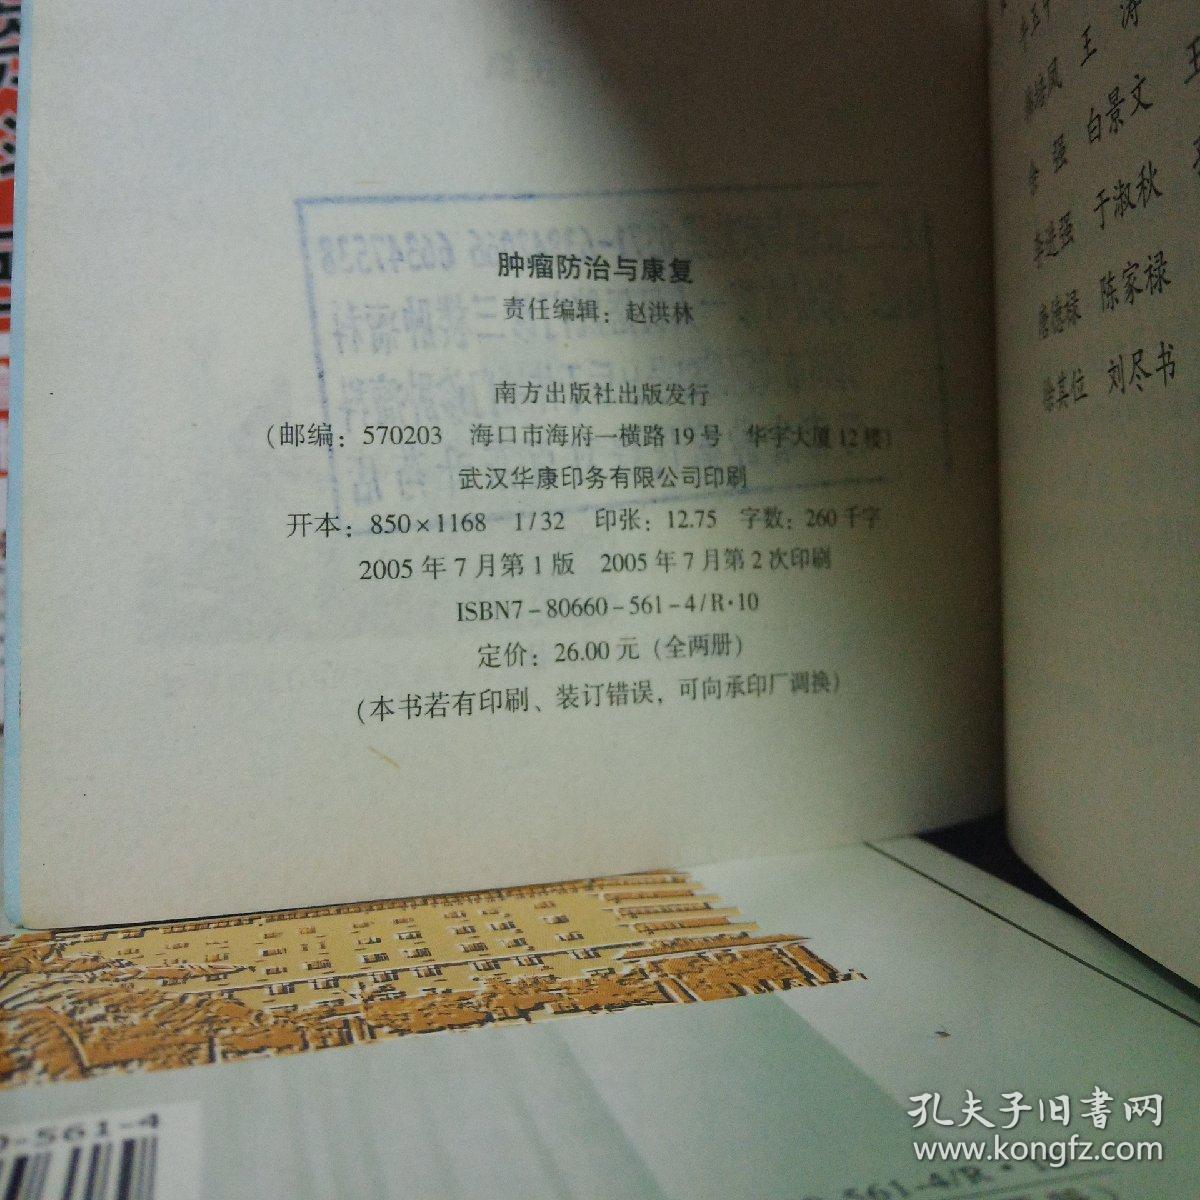 肿瘤防治与康复
责任编辑：赵洪林
南方出版社出版发行
（邮编：570203 海口市海府一横路19号 华宇大厦12楼）
武汉华康印务有限公司印刷
开本：850×1168 1/32 印张：12.75 字数：260千字
2005年7月第1版 2005年7月第2次印刷
ISBN7-80660-561-4/R·10
定价：26.00元（全两册）
（本书若有印刷、装订错误，可向承印厂调换）
王 涛
白景文 王
强 于淑秋
陈家禄
位 刘尽书
0-561-4
561-4/R·1
孔夫子旧书网
www.kongfz.com